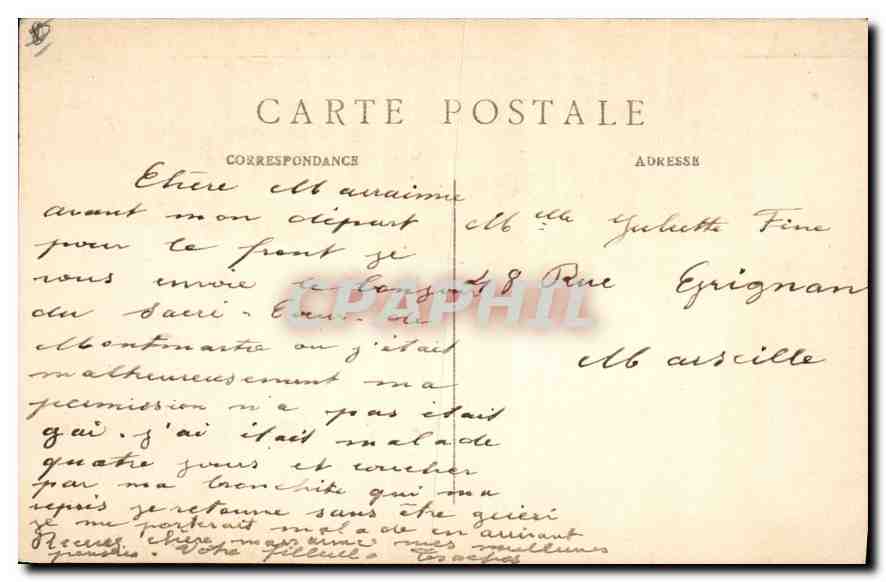 CARTE POSTALE
CORRESPONDANCE
ADRESSE
Chère Marraine
avant mon départ
pour le front je
vous envoie le bonjour
du Sacré-Coeur de
Montmartre ou j'était
malheureusement ma
permission n'a pas était
gai. j'ai était malade
quatre jours et coucher
par ma bronchite qui ma
repris je retourne sans être guéri
je me porterait malade en arrivant
Recevez chère marraine mes meilleures
pensées. Votre filleul.
Mlle Juliette Fine
48 Rue Grignan
Marseille
CPAPHIL